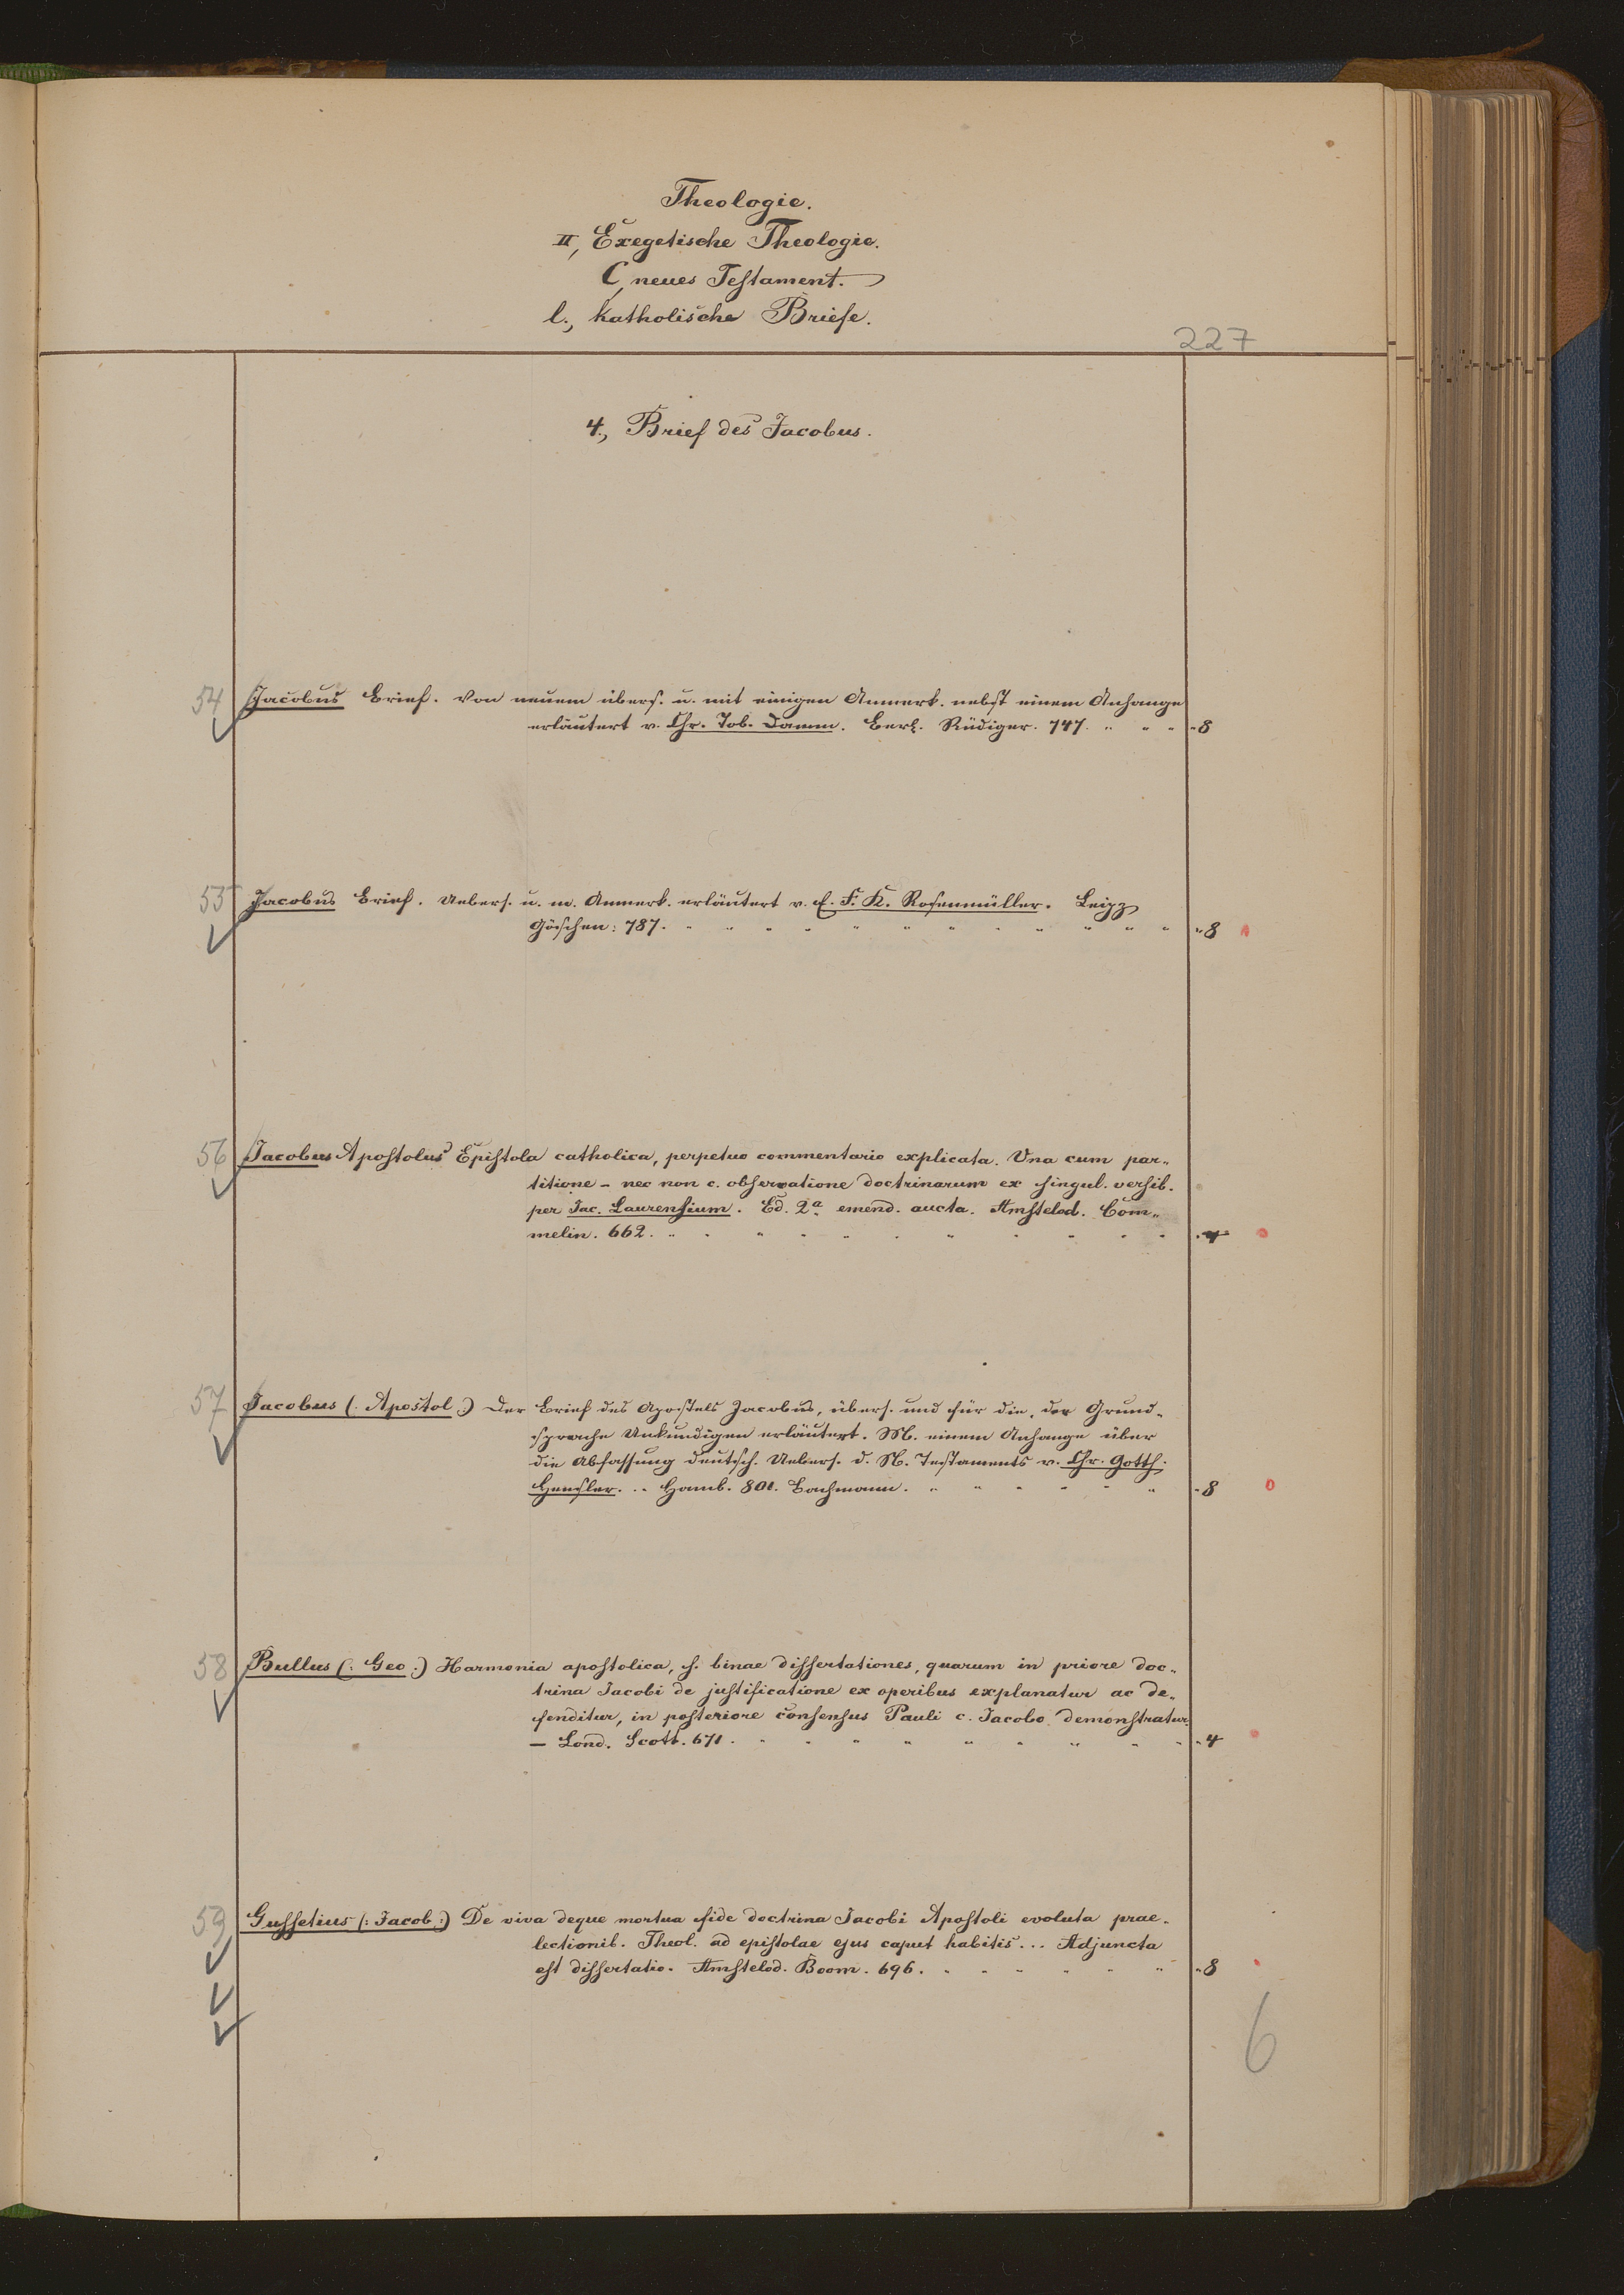 Theologie.
II, Exegetische Theologie.
C, neues Testament.
l., katholische Briefe.
227
4., Brief des Jacobus.
54 Jacobus Brief. Von neuem übers. u. mit einigen Anmerk. nebst einem Anhange
erläutert v. Chr. Tob. Damm. Berl. Rüdiger. 747. " " " "8
55 Jacobus Brief. Uebers. u. m. Anmerk. erläutert v. E. F. K. Rosenmüller. Leipz
Göschen: 787. " " " " " " " " " " " "8
56 Jacobus Apostolus Epistola catholica, perpetuo commentario explicata. Una cum par-
titione - nec non c. observatione doctrinarum ex singul. versib.
per Jac. Laurensium. Ed. 2a emend. aucta. Amstelod. Com-
melin. 662. " " " " " " " " " " " "4
57 Jacobus (: Apostol :) Der Brief des Apostels Jacobus, übers. und für die, der Grund-
sprache Unkundigen erläutert. M. einem Anhange über
die Abfassung deutsch. Uebers. d. N. Testaments v. Chr. Gotth.
Hensler. .. Hamb. 801. Bachmann. " " " " " " "8
58 Bullus (: Geo :) Harmonia apostolica, s. binae dissertationes, quarum in priore doc-
trina Jacobi de justificatione ex operibus explanatur ac de-
fenditur, in posteriore consensus Pauli c. Jacobo demonstratur.
— Lond. Scott. 671. " " " " " " " " " "4
59 Gussetius (: Jacob :) De viva deque mortua fide doctrina Jacobi Apostoli evoluta prae-
lectionib. Theol. ad epistolae ejus caput habitis ... Adjuncta
est dissertatio. Amstelod. Boom. 696. " " " " " " "8
6